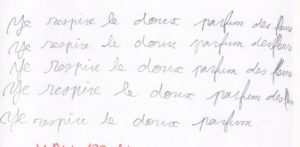 Je respire le doux parfum des fleurs
Je respire le doux parfum des fleurs
Je respire le doux parfum des fleurs
Je respire le doux parfum des
Je respire le doux parfum